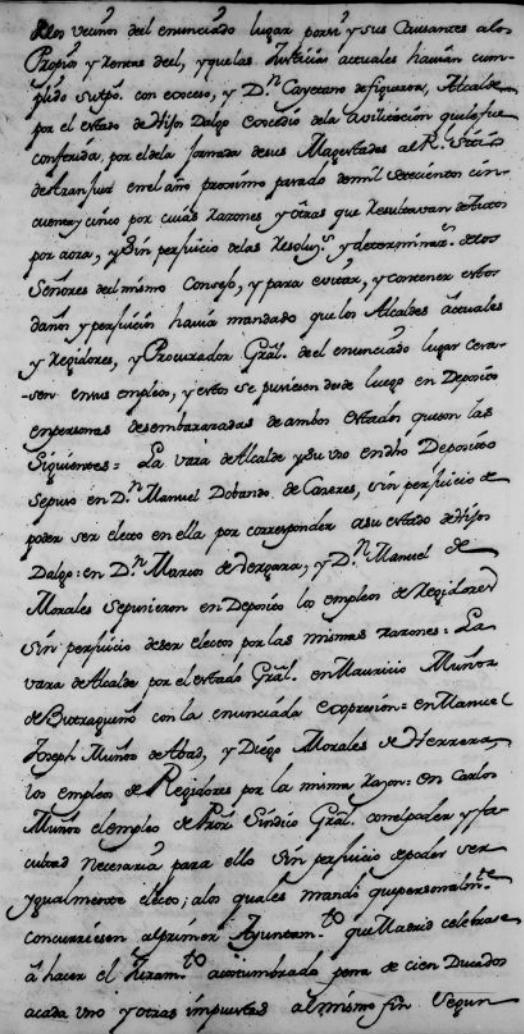 delos vecinos del enunciado lugar porsi y sus Causantes alos
Propios y Rentas del, y que las Justicias actuales havian cum-
plido su tpõ. con exceso, y D.n Cayetano de figueroa, Alcalde
por el estado de Hijos Dalgo excedió dela avilitacion quele fue
conferida, por el dela Jornada desus Magestades al R. Sitio
de Aranjuez enel año proximo pasado demil setecientos cin-
cuenta y cinco por cuias razones y otras que Resultavan de Autos
por aora, y Sin perjuicio delas Resoluz.s y determinaz.s delos
Señores del mismo Consejo, y para evitar, y contener estos
daños y perjuicios havia mandado que los Alcaldes actuales
y Regidores, y Procurador Gral. de el enunciado lugar cesa-
-sen ensus empleos, y estos se pusiesen desde luego en Deposito
enpersonas desembarazadas de ambos estados queson las
Siguientes = La vara de Alcalde y su uso endho Deposito
sepuso en D.n Manuel Dobando de Cazeres, sin perjuicio de
poder ser electo en ella por corresponder asu estado de Hijos
Dalgo: en D.n Marcos de Vergara, y D.n Manuel de
Morales sepusieron en Deposito los empleos de Regidores
sin perjuicio deser electos por las mismas razones: La
vara de Alcalde por el estado Gral. en Mauricio Muñoz
de Butragueño con la enunciada expresion = en Manuel
Joseph Muñoz de Abad, y Diego Morales de Herrera,
los empleos de Regidores por la misma razon: en Carlos
Muñoz elempleo de Pror. Sindico Gral. conelpoder y fa-
cultad necesaria para ello sin perjuicio depoder ser
ygualmente electo; alos quales mandó quepersonalm.te
concurriesen alprimer Ayuntam.to que Madrid celebrase
á hacer el Juram.to acostumbrado pena de cien Ducados
acada uno y otras impuestas al mismo fin Segun